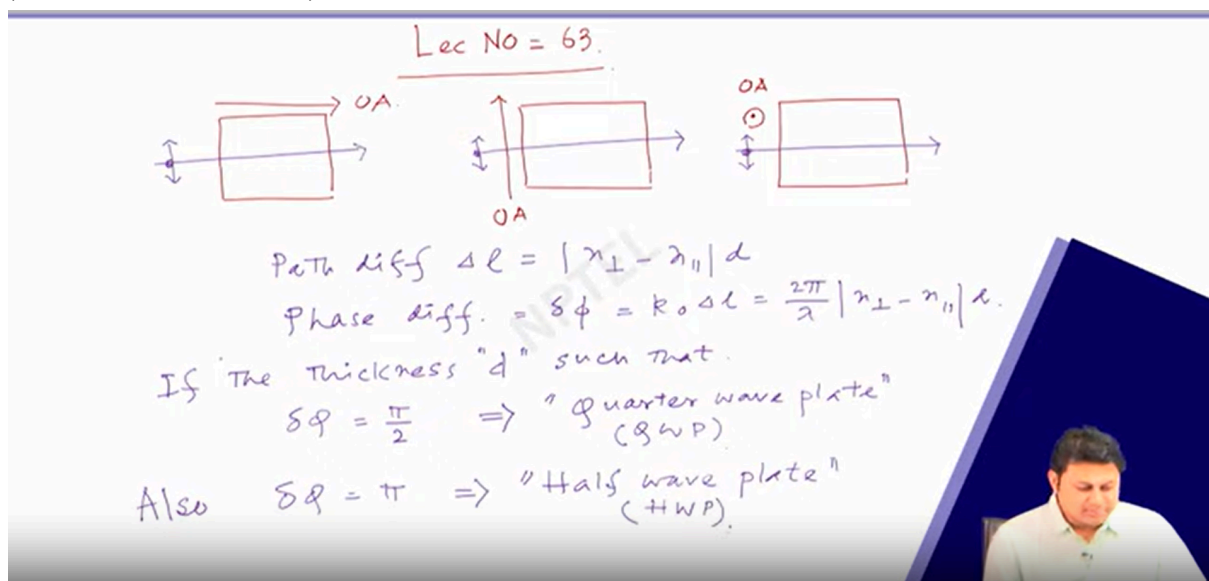 Lec No = 63.
OA.
OA
OA
Path diff Δl = |n⊥ - n∥| d
Phase diff. = δϕ = k₀ Δl = 2π/λ |n⊥ - n∥| d.
If The Thickness "d" such that.
δϕ = π/2 => "Quarter wave plate"
(QWP)
Also δϕ = π => "Half wave plate"
(HWP).
NPTEL